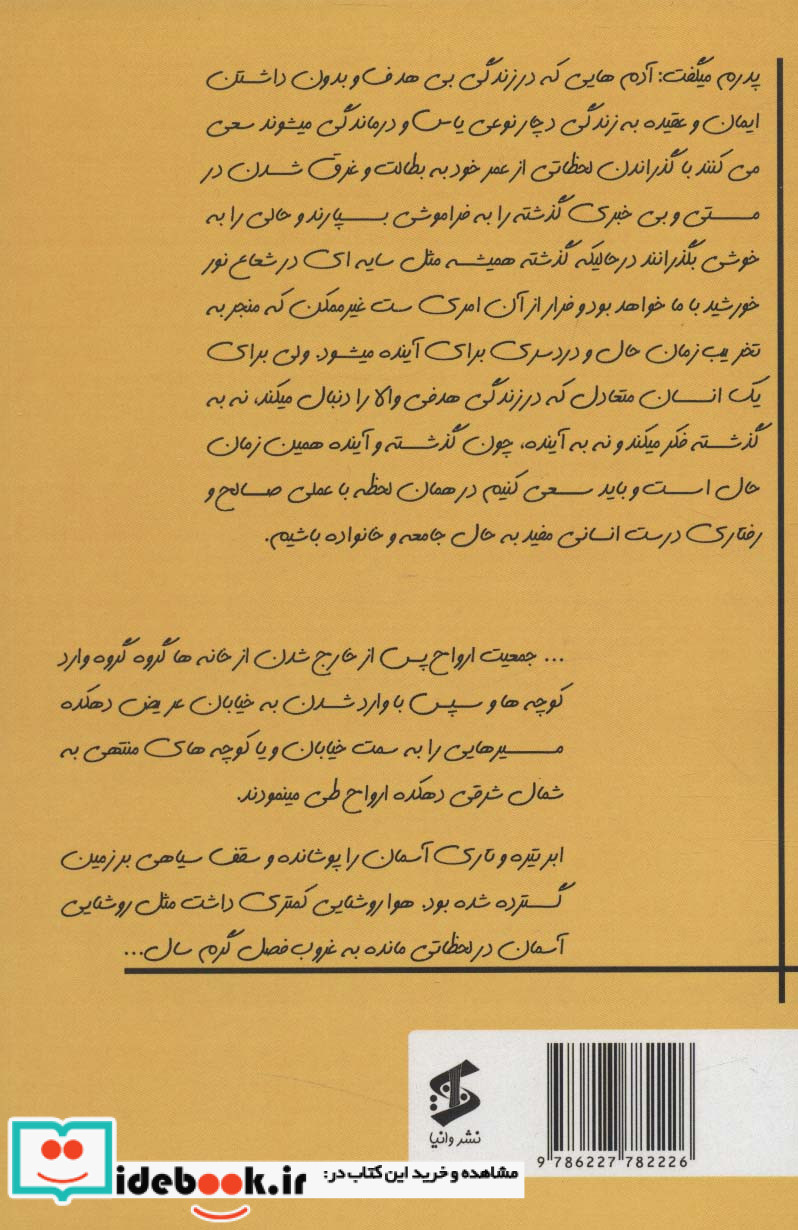 پدرم میگفت: آدم هایی که در زندگی بی هدف و بدون داشتن
ایمان و عقیده به زندگی دچار نوعی یاس و درماندگی میشوند سعی
می کنند با گذراندن لحظاتی از عمر خود به بطالت و غرق شدن در
مستی و بی خبری گذشته را به فراموشی بسپارند و حالی را به
خوشی بگذرانند در حالیکه گذشته همیشه مثل سایه ای در شعاع نور
خورشید با ما خواهد بود و فرار از آن امری ست غیرممکن که منجر به
تخریب زمان حال و دردسری برای آینده میشود. ولی برای
یک انسان متعادل که در زندگی هدفی والا را دنبال میکند، نه به
گذشته فکر میکند و نه به آینده، چون گذشته و آینده همین زمان
حال است و باید سعی کنیم در همان لحظه با عملی صالح و
رفتاری درست انسانی مفید به حال جامعه و خانواده باشیم.
... جمعیت ارواح پس از خارج شدن از خانه ها گروه گروه وارد
کوچه ها و سپس با وارد شدن به خیابان عریض دهکده
مسیرهایی را به سمت خیابان و یا کوچه های منتهی به
شمال شرقی دهکده ارواح طی مینمودند.
ابر تیره و تاری آسمان را پوشانده و سقف سیاهی بر زمین
گسترده شده بود. هوا روشنایی کمتری داشت مثل روشنایی
آسمان در لحظاتی مانده به غروب فصل گرم سال...
نشر وانیا
9 786227 782226
مشاهده و خرید این کتاب در:
idebook.ir